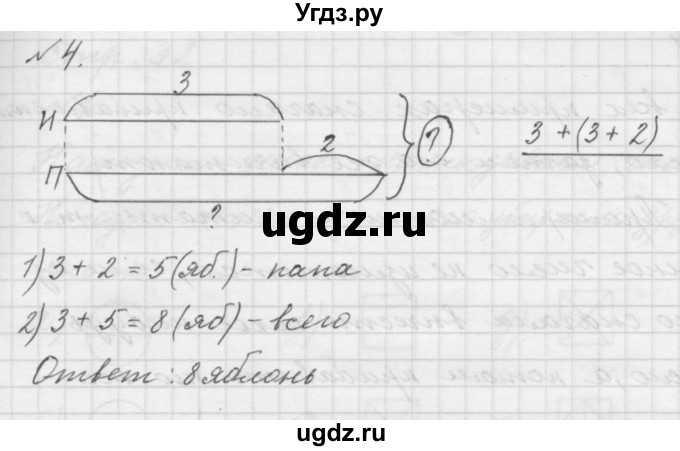 Угдз.ру
№ 4.
3
И
2
?
3 + (3 + 2)
П
?
ugdz.ru
1) 3 + 2 = 5 (яб.) - папа
2) 3 + 5 = 8 (яб) - всего
ugdz.ru
Ответ : 8 яблонь
ugdz.ru